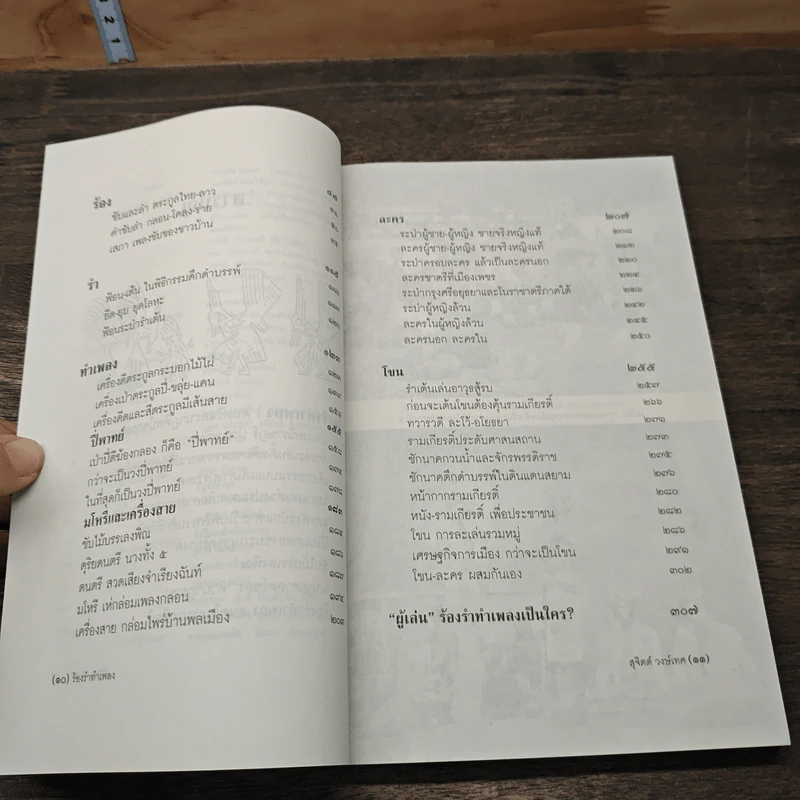 ร้อง
ขับและลำ ตระกูลไทย-ลาว
คำขับลำ กลอน-โคลง-ร่าย
เสภา เพลงขับของชาวบ้าน
รำ ๑๑๕
ฟ้อน-เต้น ในพิธีกรรมดึกดำบรรพ์
ยืด-ยุบ ยุคโลหะ
ฟ้อนระบำรำเต้น
ทำเพลง ๑๒๓
เครื่องตีตระกูลกระบอกไม้ไผ่
เครื่องเป่าตระกูลปี่-ขลุ่ย-แคน
เครื่องดีดและสีตระกูลมีเส้นสาย
ปี่พาทย์ ๑๕๕
เป่าปี่ตีฆ้องกลอง ก็คือ "ปี่พาทย์" ๑๕๘
กว่าจะเป็นวงปี่พาทย์
ในที่สุดก็เป็นวงปี่พาทย์ ๑๗๘
มโหรีและเครื่องสาย ๑๘๓
ขับไม้บรรเลงพิณ ๑๘๔
ดุริยดนตรี นางทั้ง ๕
ดนตรี สวดเสียงจำเรียงฉันท์
มโหรี เห่กล่อมเพลงกลอน ๑๙๔
เครื่องสาย กล่อมไพร่บ้านพลเมือง ๒๐๓
(๑๐) ร้องรำทำเพลง
ละคร ๒๐๗
ระบำผู้ชาย-ผู้หญิง ชายจริงหญิงแท้ ๒๐๘
ละครผู้ชาย-ผู้หญิง ชายจริงหญิงแท้ ๒๑๒
ระบำครอบละคร แล้วเป็นละครนอก ๒๒๐
ละครชาตรีที่เมืองเพชร ๒๒๔
ระบำกรุงศรีอยุธยาและโนราชาตรีภาคใต้ ๒๒๖
ระบำผู้หญิงล้วน ๒๔๒
ละครในผู้หญิงล้วน ๒๔๕
ละครนอก ละครใน ๒๕๐
โขน ๒๕๕
รำเต้นเล่นอาวุธสู้รบ ๒๕๗
ก่อนจะเต้นโขนต้องคุ้นรามเกียรติ์ ๒๖๖
ทวารวดี ละโว้-อโยธยา ๒๗๑
รามเกียรติ์ประดับศาสนสถาน ๒๗๓
ชักนาคกวนน้ำและจักรพรรดิราช ๒๗๕
ชักนาคดึกดำบรรพ์ในดินแดนสยาม ๒๗๖
หน้ากากรามเกียรติ์ ๒๘๐
หนัง-รามเกียรติ์ เพื่อประชาชน ๒๘๒
โขน การละเล่นรวมหมู่ ๒๘๖
เศรษฐกิจการเมือง กว่าจะเป็นโขน ๒๙๑
โขน-ละคร ผสมกันเอง ๓๐๒
"ผู้เล่น" ร้องรำทำเพลงเป็นใคร? ๓๐๗
สุจิตต์ วงษ์เทศ (๑๑)